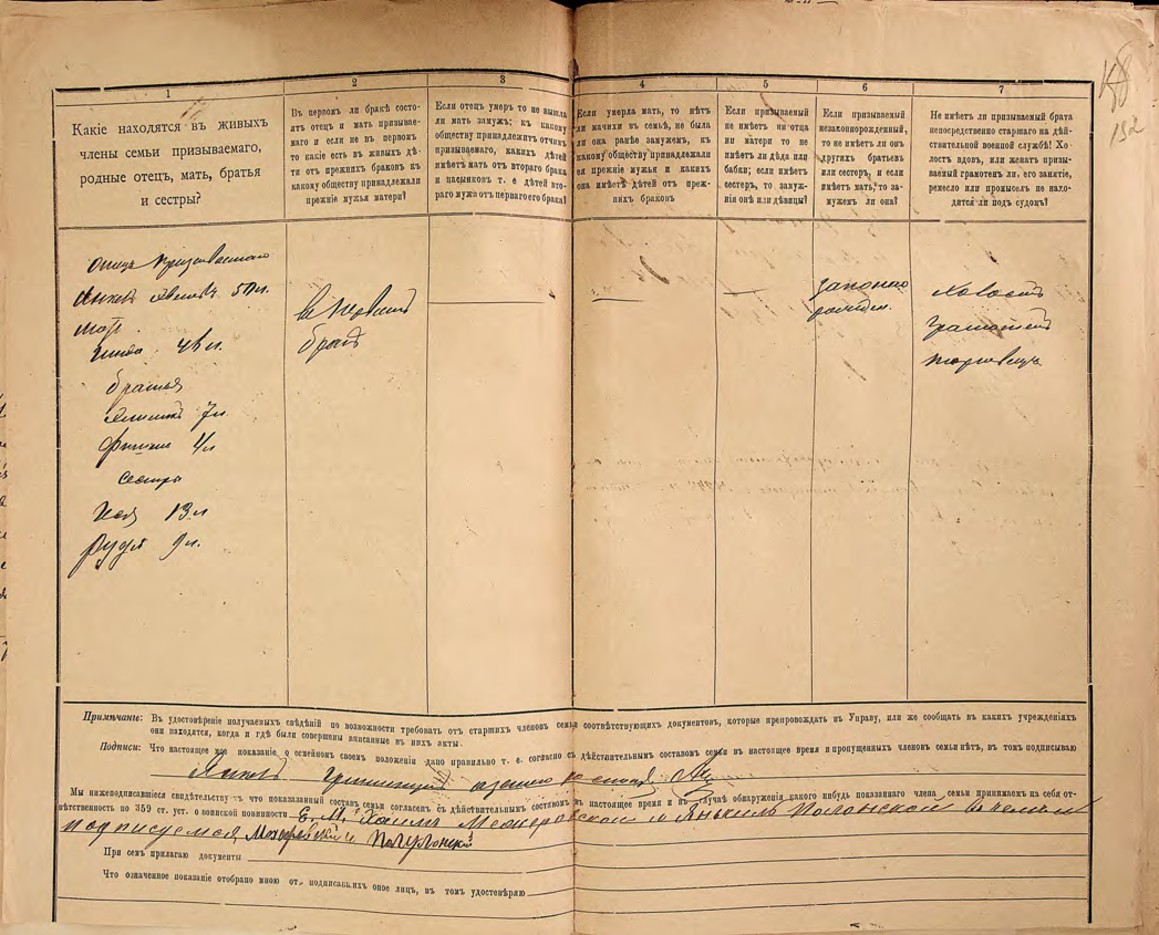 1
2
3
4
5
6
7
Какіе находятся въ живыхъ
члены семьи призываемаго,
родные отецъ, мать, братья
и сестры?
Въ первомъ ли бракѣ состо-
ятъ отецъ и мать призывае-
маго и если не въ первомъ
то какіе есть въ живыхъ дѣ-
ти отъ прежнихъ браковъ къ
какому обществу принадлежали
прежніе мужья матери?
Если отецъ умеръ то не вышла
ли мать замужъ; къ какому
обществу принадлежитъ отчимъ
призываемаго, какихъ дѣтей
имѣетъ мать отъ втораго брака
и пасынковъ т. е. дѣтей вто-
раго мужа отъ перваго его брака?
Если умерла мать, то нѣтъ
ли мачихи въ семьѣ, не была
ли она ранѣе замужемъ, къ
какому обществу принадлежали
ея прежніе мужья и какихъ
она имѣетъ дѣтей отъ преж-
нихъ браковъ
Если призываемый
не имѣетъ ни отца
ни матери то не
имѣетъ ли дѣда или
бабки; если имѣетъ
сестеръ, то замуж-
нія онѣ или дѣвицы?
Если призываемый
незаконнорожденный,
то не имѣетъ ли онъ
другихъ братьевъ
или сестеръ, и если
имѣетъ мать, то за-
мужемъ ли она?
Не имѣетъ ли призываемый брата
непосредственно старшаго на дѣй-
ствительной военной службѣ? Хо-
лостъ вдовъ, или женатъ призы-
ваемый грамотенъ ли, его занятіе,
ремесло или промыселъ не нахо-
дится ли подъ судомъ?
Отецъ призываемаго
Янкель 50 л.
мать
братья
7 л
4 л
сестры
13 л
9 л.
въ первомъ
бракѣ
законно
рожден.
холостъ
грамотенъ
торговецъ
Примѣчаніе: Въ удостовѣреніе получаемыхъ свѣдѣній по возможности требовать отъ старшихъ членовъ семьи соотвѣтствующихъ документовъ, которые препровождать въ Управу, или же сообщать въ какихъ учрежденіяхъ
они находятся, когда и гдѣ были совершены вписанные въ нихъ акты.
Подписи: Что настоящее же показаніе о семейномъ своемъ положеніи дано правильно т. е. согласно съ дѣйствительнымъ составомъ семьи въ настоящее время и пропущенныхъ членовъ семьи нѣтъ, въ томъ подписываю
Янкель
Мы нижеподписавшіеся свидѣтельствуемъ что показазанный составъ семьи согласенъ съ дѣйствительнымъ составомъ въ настоящее время и въ случаѣ обнаруженія какого нибудь показаннаго члена семьи принимаемъ на себя от-
вѣтственность по 359 ст. уст. о воинской повинности Е. М. Хаимъ и Янкель Полонской в чемъ и
подписуемся
При семъ прилагаю документы
Что означенное показаніе отобрано мною отъ подписавшихъ оное лицъ, въ томъ удостовѣряю